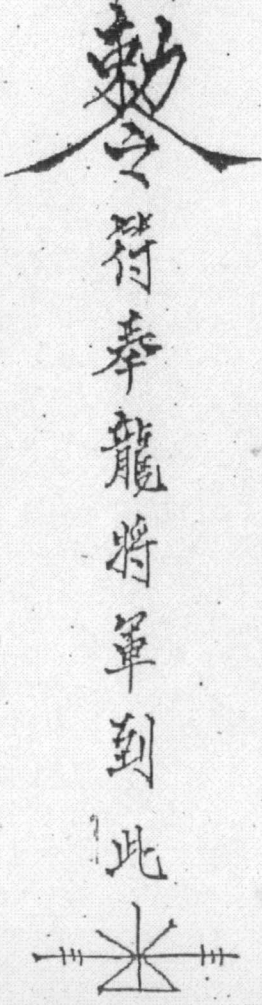 敕令符奉龍將軍到此